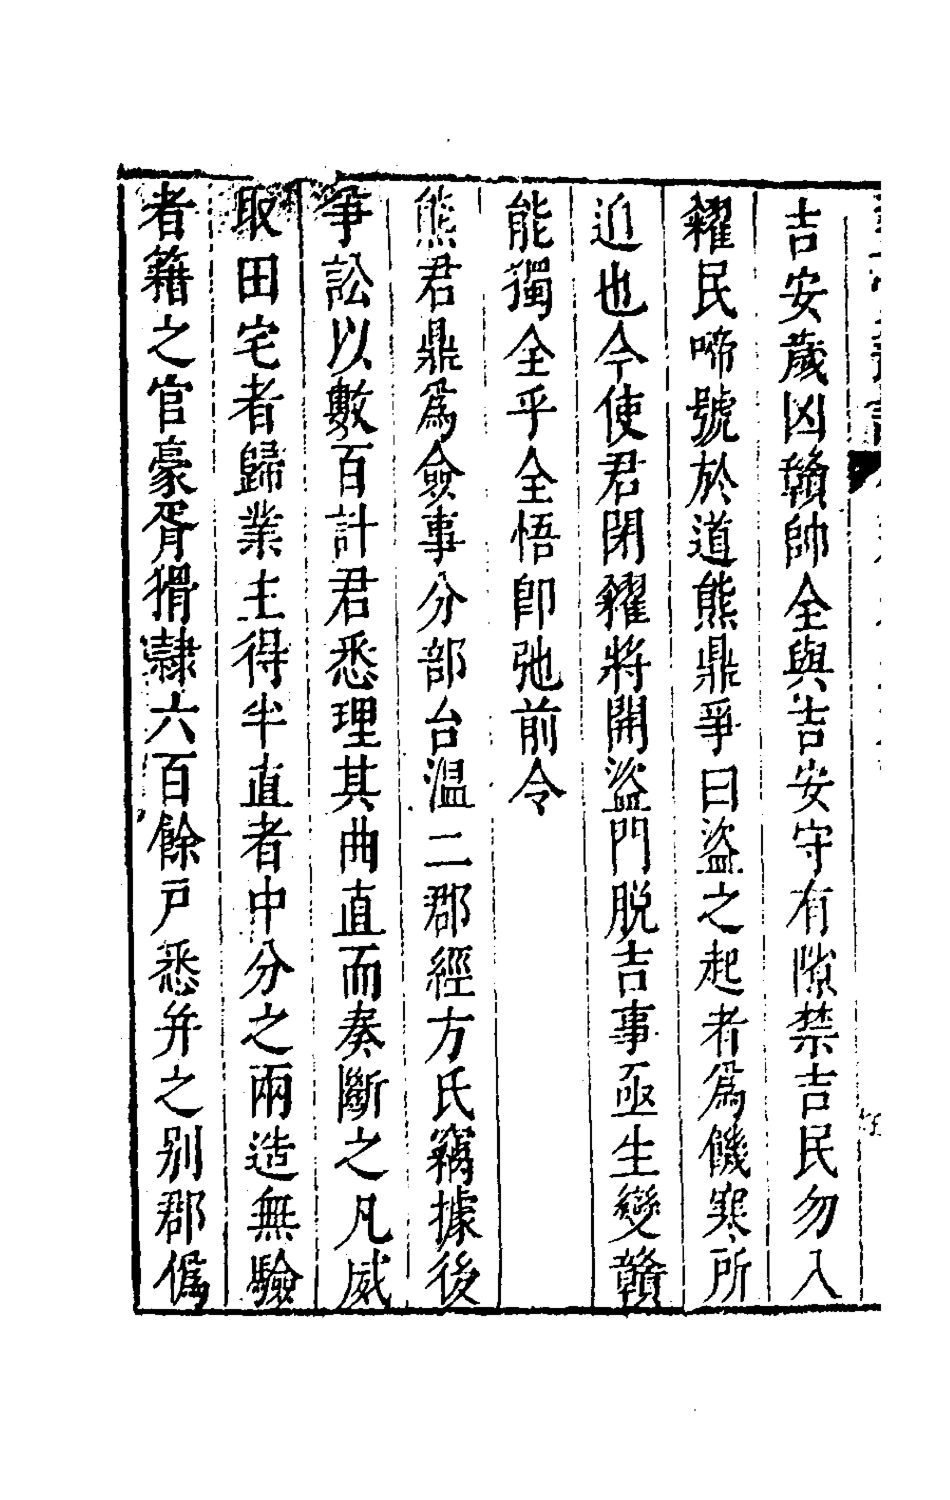 吉安歲凶贛帥全與吉安守有隙禁吉民勿入
糴民啼號於道熊鼎爭曰盜之起者爲饑寒所
迫也今使君閉糴將開盜門脱吉事亟生變贛
能獨全乎全悟卽弛前令
熊君鼎爲僉事分部台温二郡經方氏竊據後
爭訟以數百計君悉理其曲直而奏斷之凡威
取田宅者歸業主得半直者中分之兩造無驗
者籍之官豪胥猾隷六百餘戸悉并之别郡僞